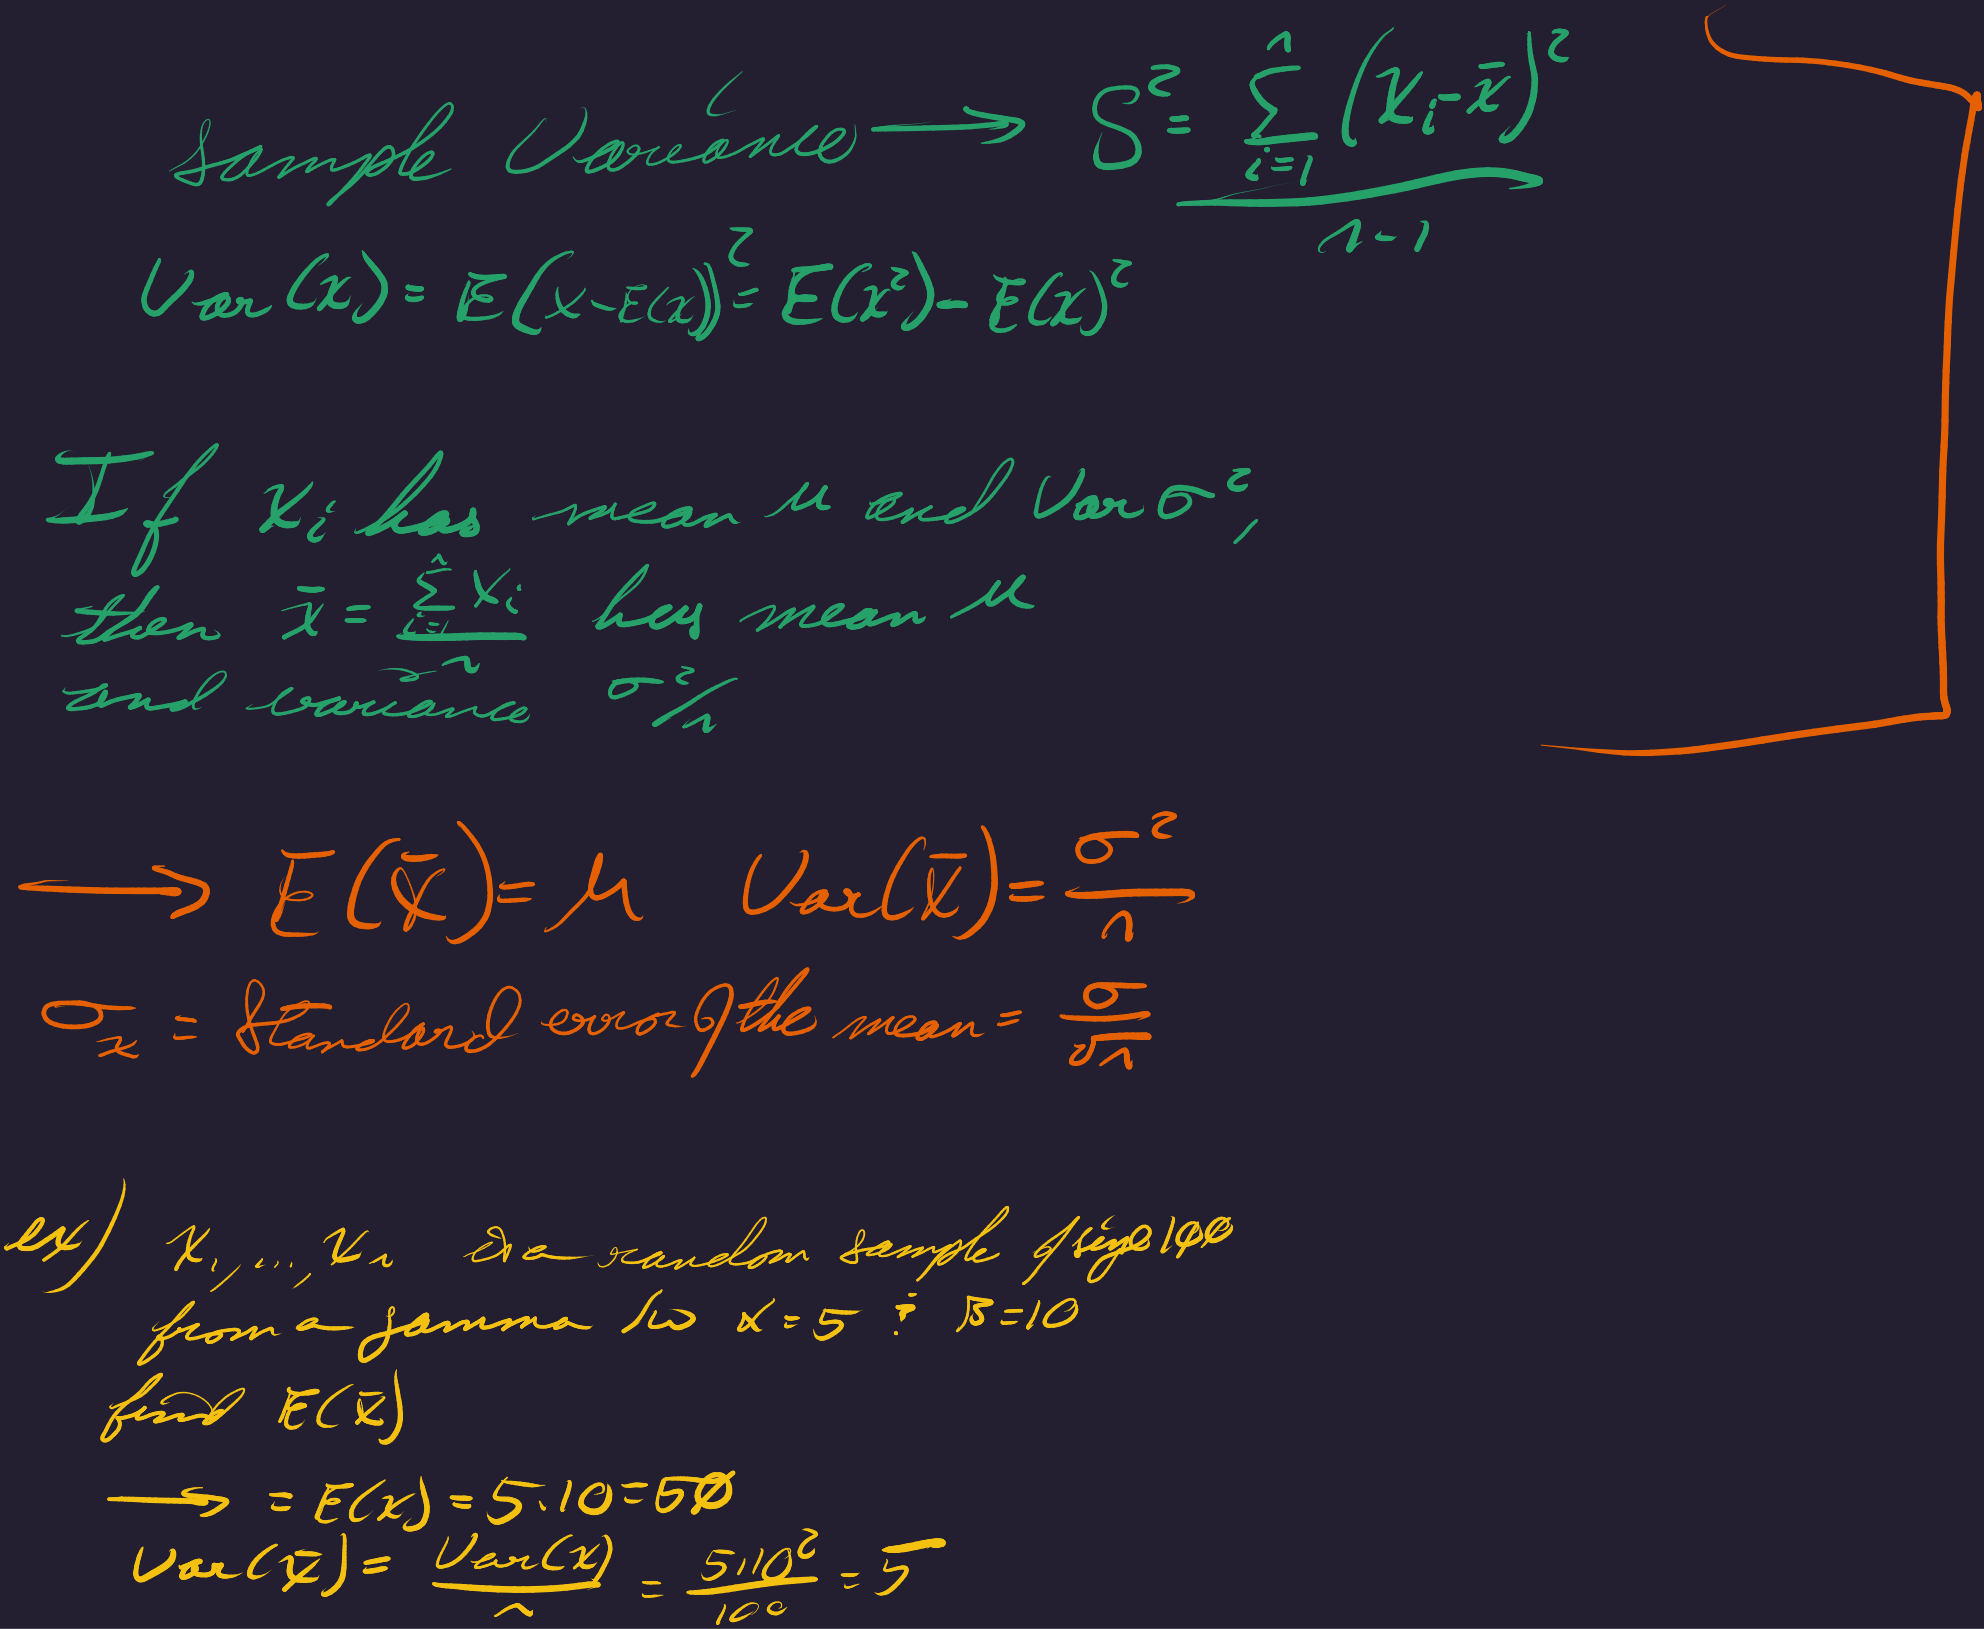 Sample Variance → S² = Σ_{i=1}^{n} (X_i - x̄)² / n-1
Var(x) = E(x-E(x))² = E(x²) - E(x)²
If X_i has mean μ and Var σ²,
then x̄ = Σ_{i=1}^{n} X_i / n has mean μ
and variance σ²/n
→ E(X̄) = μ Var(X̄) = σ²/n
σ_x = Standard error of the mean = σ/√n
ex) X_1, ..., X_n is a random sample of size 100
from a gamma w α = 5 & β = 10
find E(X̄)
→ = E(x) = 5·10 = 50
Var(X̄) = Var(X)/n = 5·10²/100 = 5